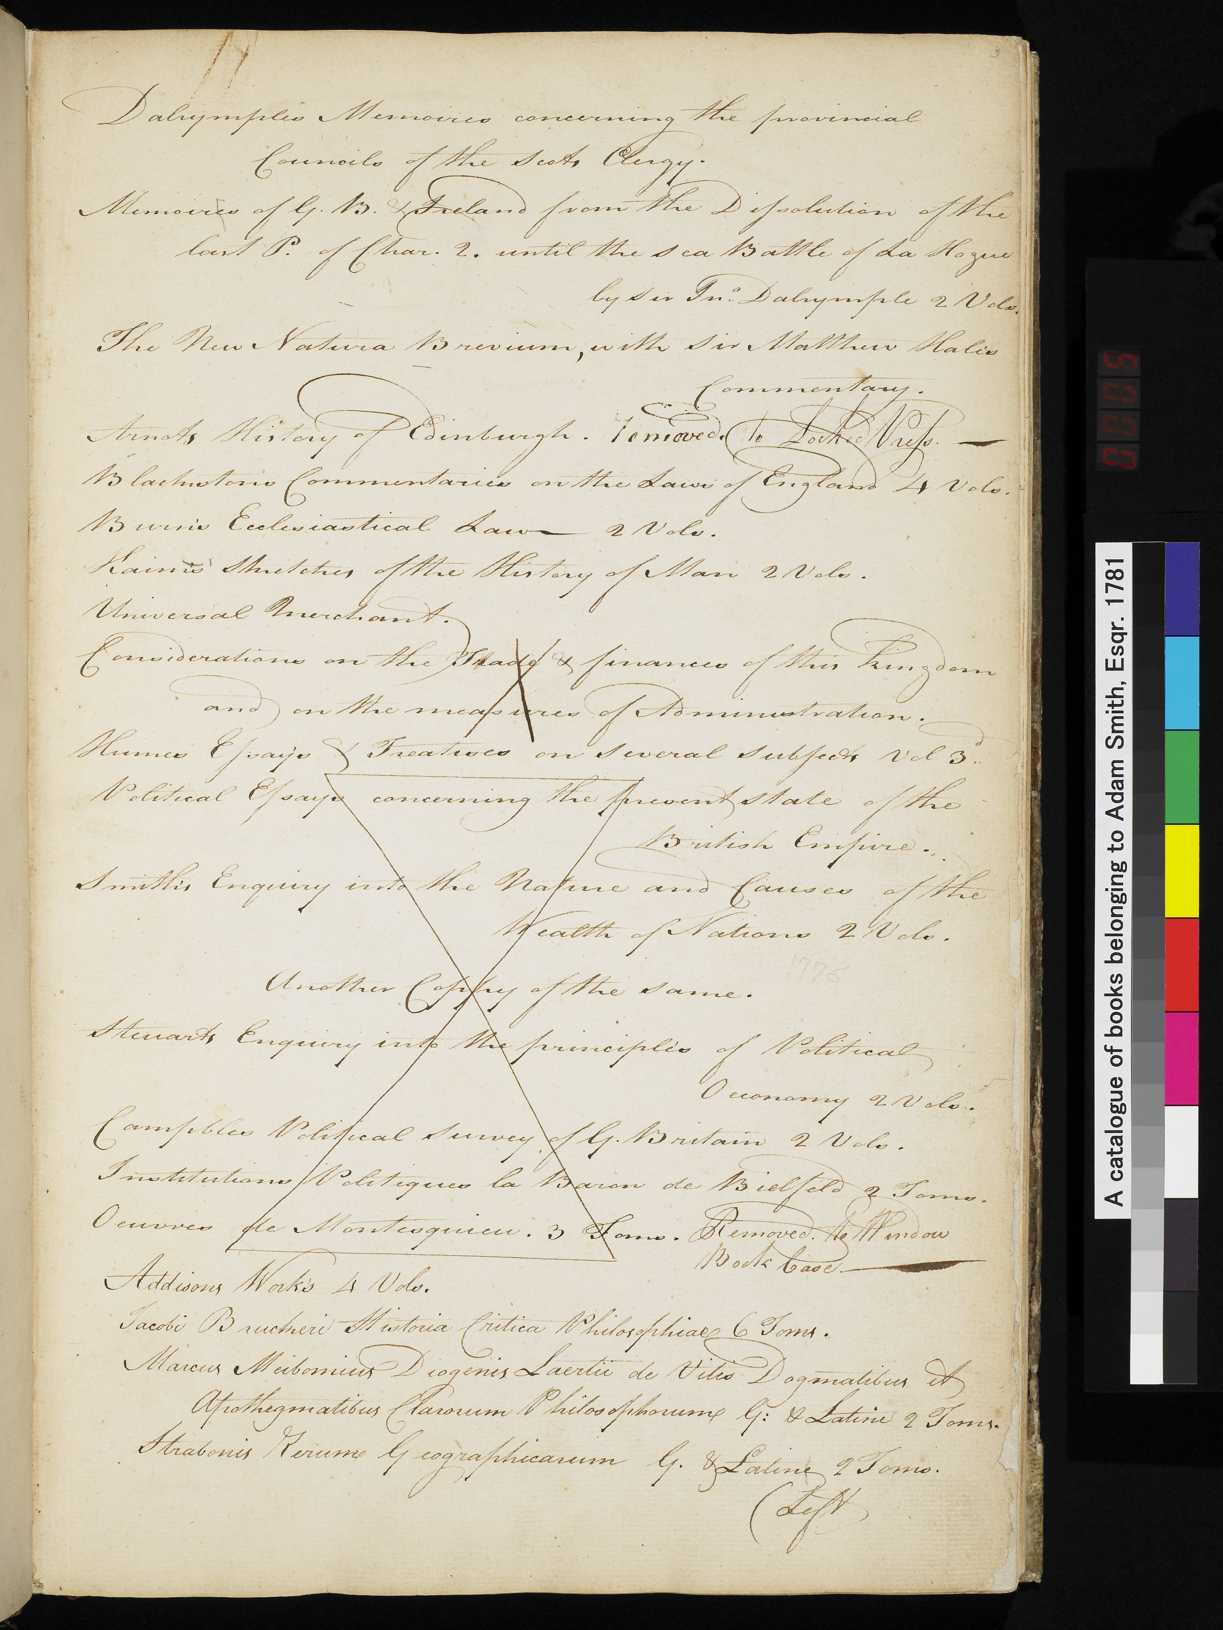 3
Dalrymples Memoires concerning the provincial
Councils of the Scots Clergy.
Memoires of G. B. & Ireland from the Dissolution of the
last P. of Char. 2. until the sea Battle of La Hogue
by Sir Jno. Dalrymple 2 Vols.
The New Natura Brevium, with Sir Matthew Hales
Commentary.
Arnots History of Edinburgh. removed. to Locked Press. —
Blackstons Commentaries on the Laws of England 4 Vols.
Burns Ecclesiastical Law — 2 Vols.
Kaims Sketches of the History of Man 2 Vols.
Universal Merchant.
Considerations on the Trade & finances of this Kingdom
and on the measures of Administration.
Humes Essays & Treatises on several subjects Vol 3d.
Political Essays concerning the present state of the
British Empire.
Smiths Enquiry into the Nature and Causes of the
Wealth of Nations 2 Vols.
1778
Another Coppy of the same.
Steuarts Enquiry into the principles of Political
Oeconomy 2 Vols.
Campbles Political Survey of G. Britain 2 Vols.
Institutions Politiques la Baron de Bielfeld 2 Toms.
Oeuvres de Montesquieu. 3 Toms. Removed. to Window
Book Case —
Addisons Works 4 Vols.
Jacobi Bruckeri Historia Critica Philosophiae 6 Toms.
Marcus Meibomius Diogenis Laertii de Vitis Dogmatibus et
Apothegmatibus Clarorum Philosophorum G: & Latine 2 Toms.
Strabonis Rerum Geographicarum G. & Latine 2 Toms.
(Left
0005
A catalogue of books belonging to Adam Smith, Esqr. 1781